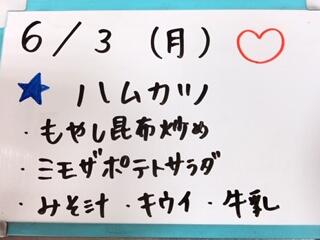 6/3 (月)
ハムカツ
・もやし昆布炒め
・ミモザポテトサラダ
・みそ汁・キウイ・牛乳